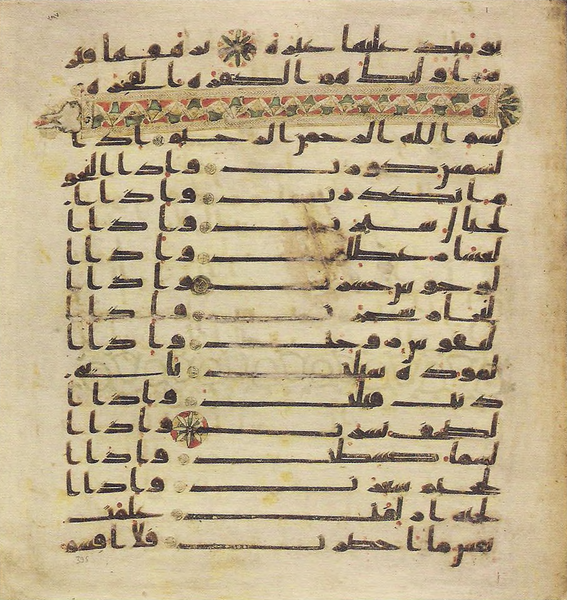 يومئذ عليها غبرة ترهقها قتر
ة اولئك هم الكفرة الفجرة
بسم الله الرحمن الرحيم اذا ا
لشمس كورت واذا النجو
م انكدرت واذا ا
لجبال سيرت واذا ا
لعشار عطلت واذا ا
لوحوش حشرت واذا ا
لبحار سجرت واذا ا
لنفوس زوجت واذا ا
لموودة سئلت باي
ذنب قتلت واذا ا
لصحف نشرت واذا ا
لسما كشطت واذا ا
لجحيم سعرت واذا ا
لجنة ازلفت علمت
نفس ما احضرت فلا اقسم